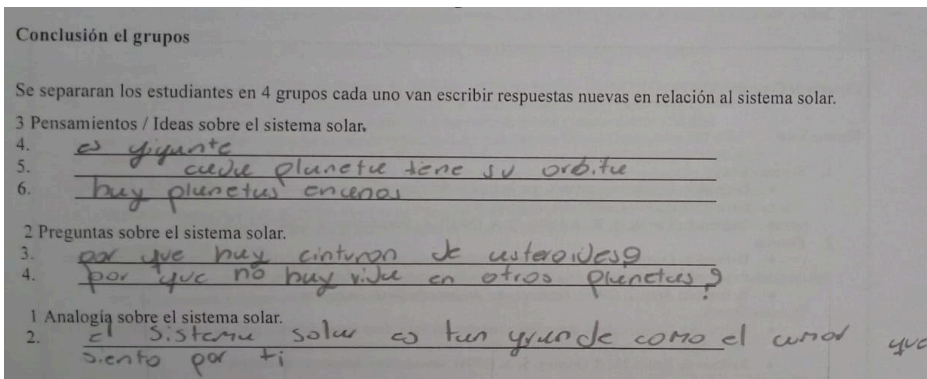 Conclusión el grupos
Se separaran los estudiantes en 4 grupos cada uno van escribir respuestas nuevas en relación al sistema solar.
3 Pensamientos / Ideas sobre el sistema solar.
4. es gigante
5. cada planeta tiene su orbita
6. hay planetas enanos
2 Preguntas sobre el sistema solar.
3. por que hay cinturon de asteroides?
4. por que no hay vida en otros planetas?
1 Analogia sobre el sistema solar.
2. el sistema solar es tan grande como el amor que
siento por ti